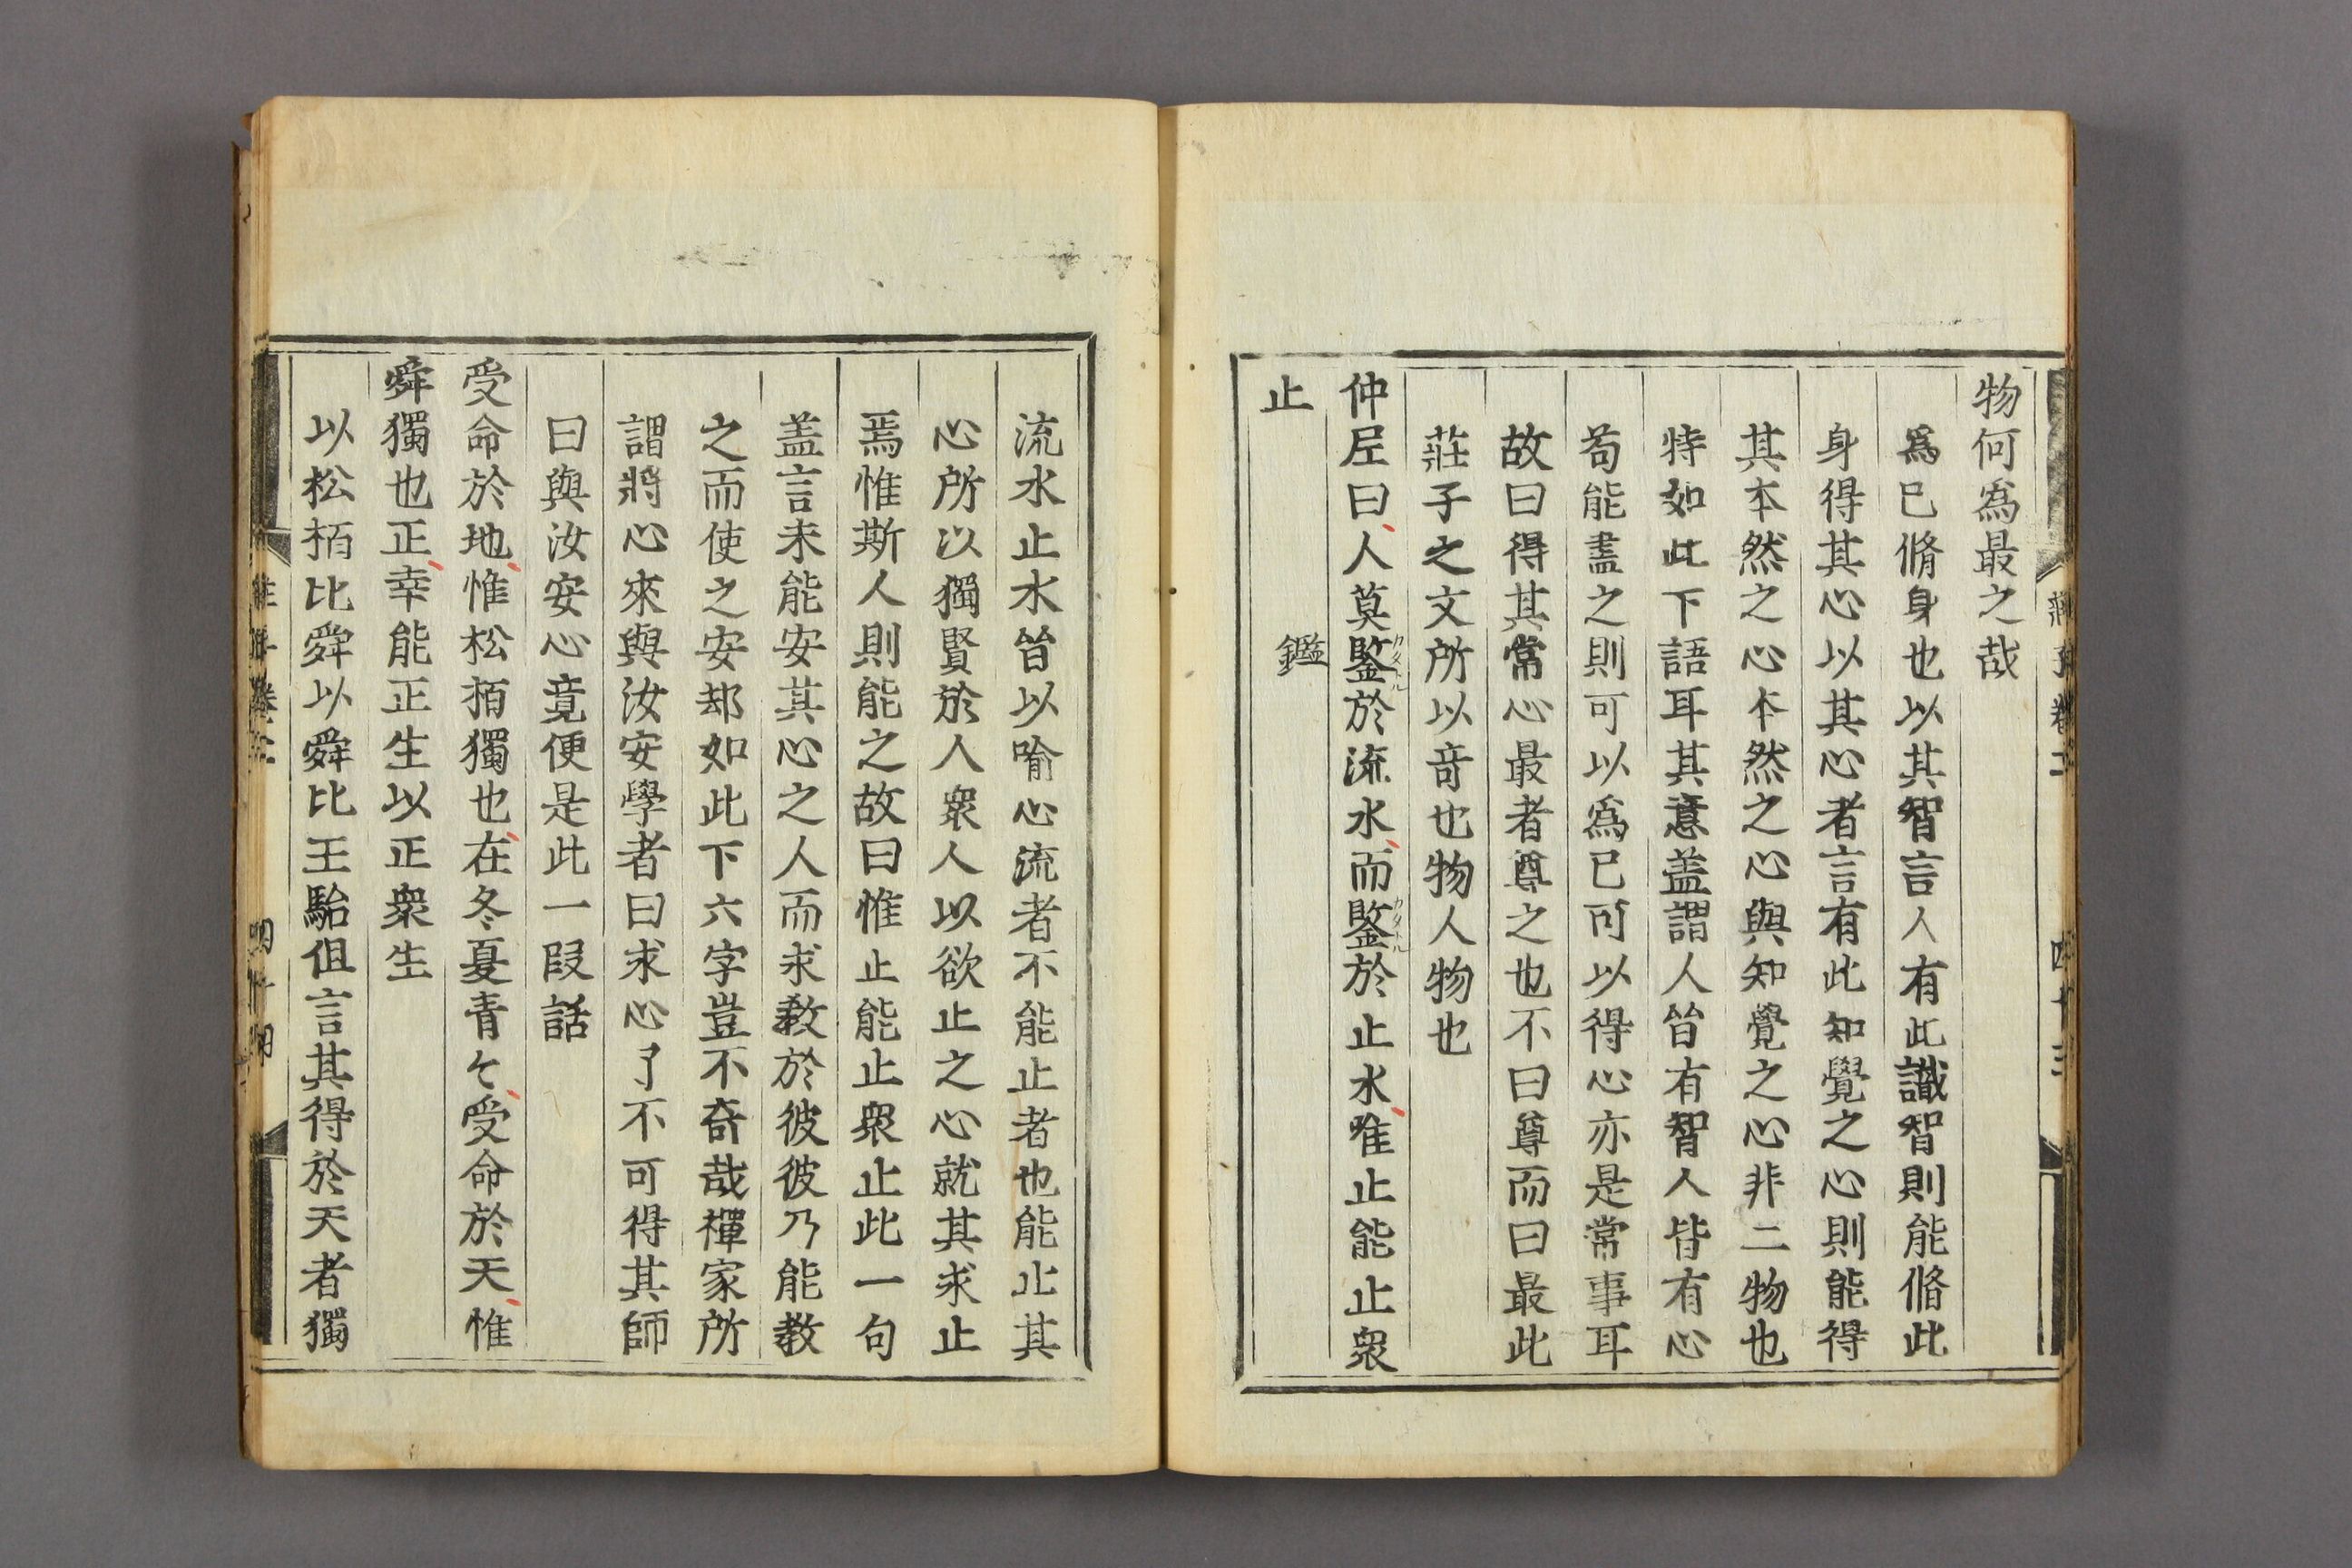 物何爲最之哉
爲已脩身也以其智言人有此識智則能脩此
身得其心以其心者言有此知覺之心則能得
其本然之心本然之心與知覺之心非二物也
特如此下語耳其意盖謂人皆有智人皆有心
苟能盡之則可以爲已可以得心亦是常事耳
故曰得其常心最者尊之也不曰尊而曰最此
莊子之文所以竒也物人物也
仲尼曰人莫鍳於流水而鍳於止水唯止能止衆
止
鑑
流水止水皆以喻心流者不能止者也能止其
心所以獨賢於人衆人以欲止之心就其求止
焉惟斯人則能之故曰惟止能止衆止此一句
盖言未能安其心之人而求教於彼彼乃能教
之而使之安却如此下六字豈不奇哉禪家所
謂將心來與汝安學者曰求心了不可得其師
曰與汝安心竟便是此一段話
受命於地惟松栢獨也在冬夏青々受命於天惟
舜獨也正幸能正生以正衆生
以松栢比舜以舜比王駘但言其得於天者獨